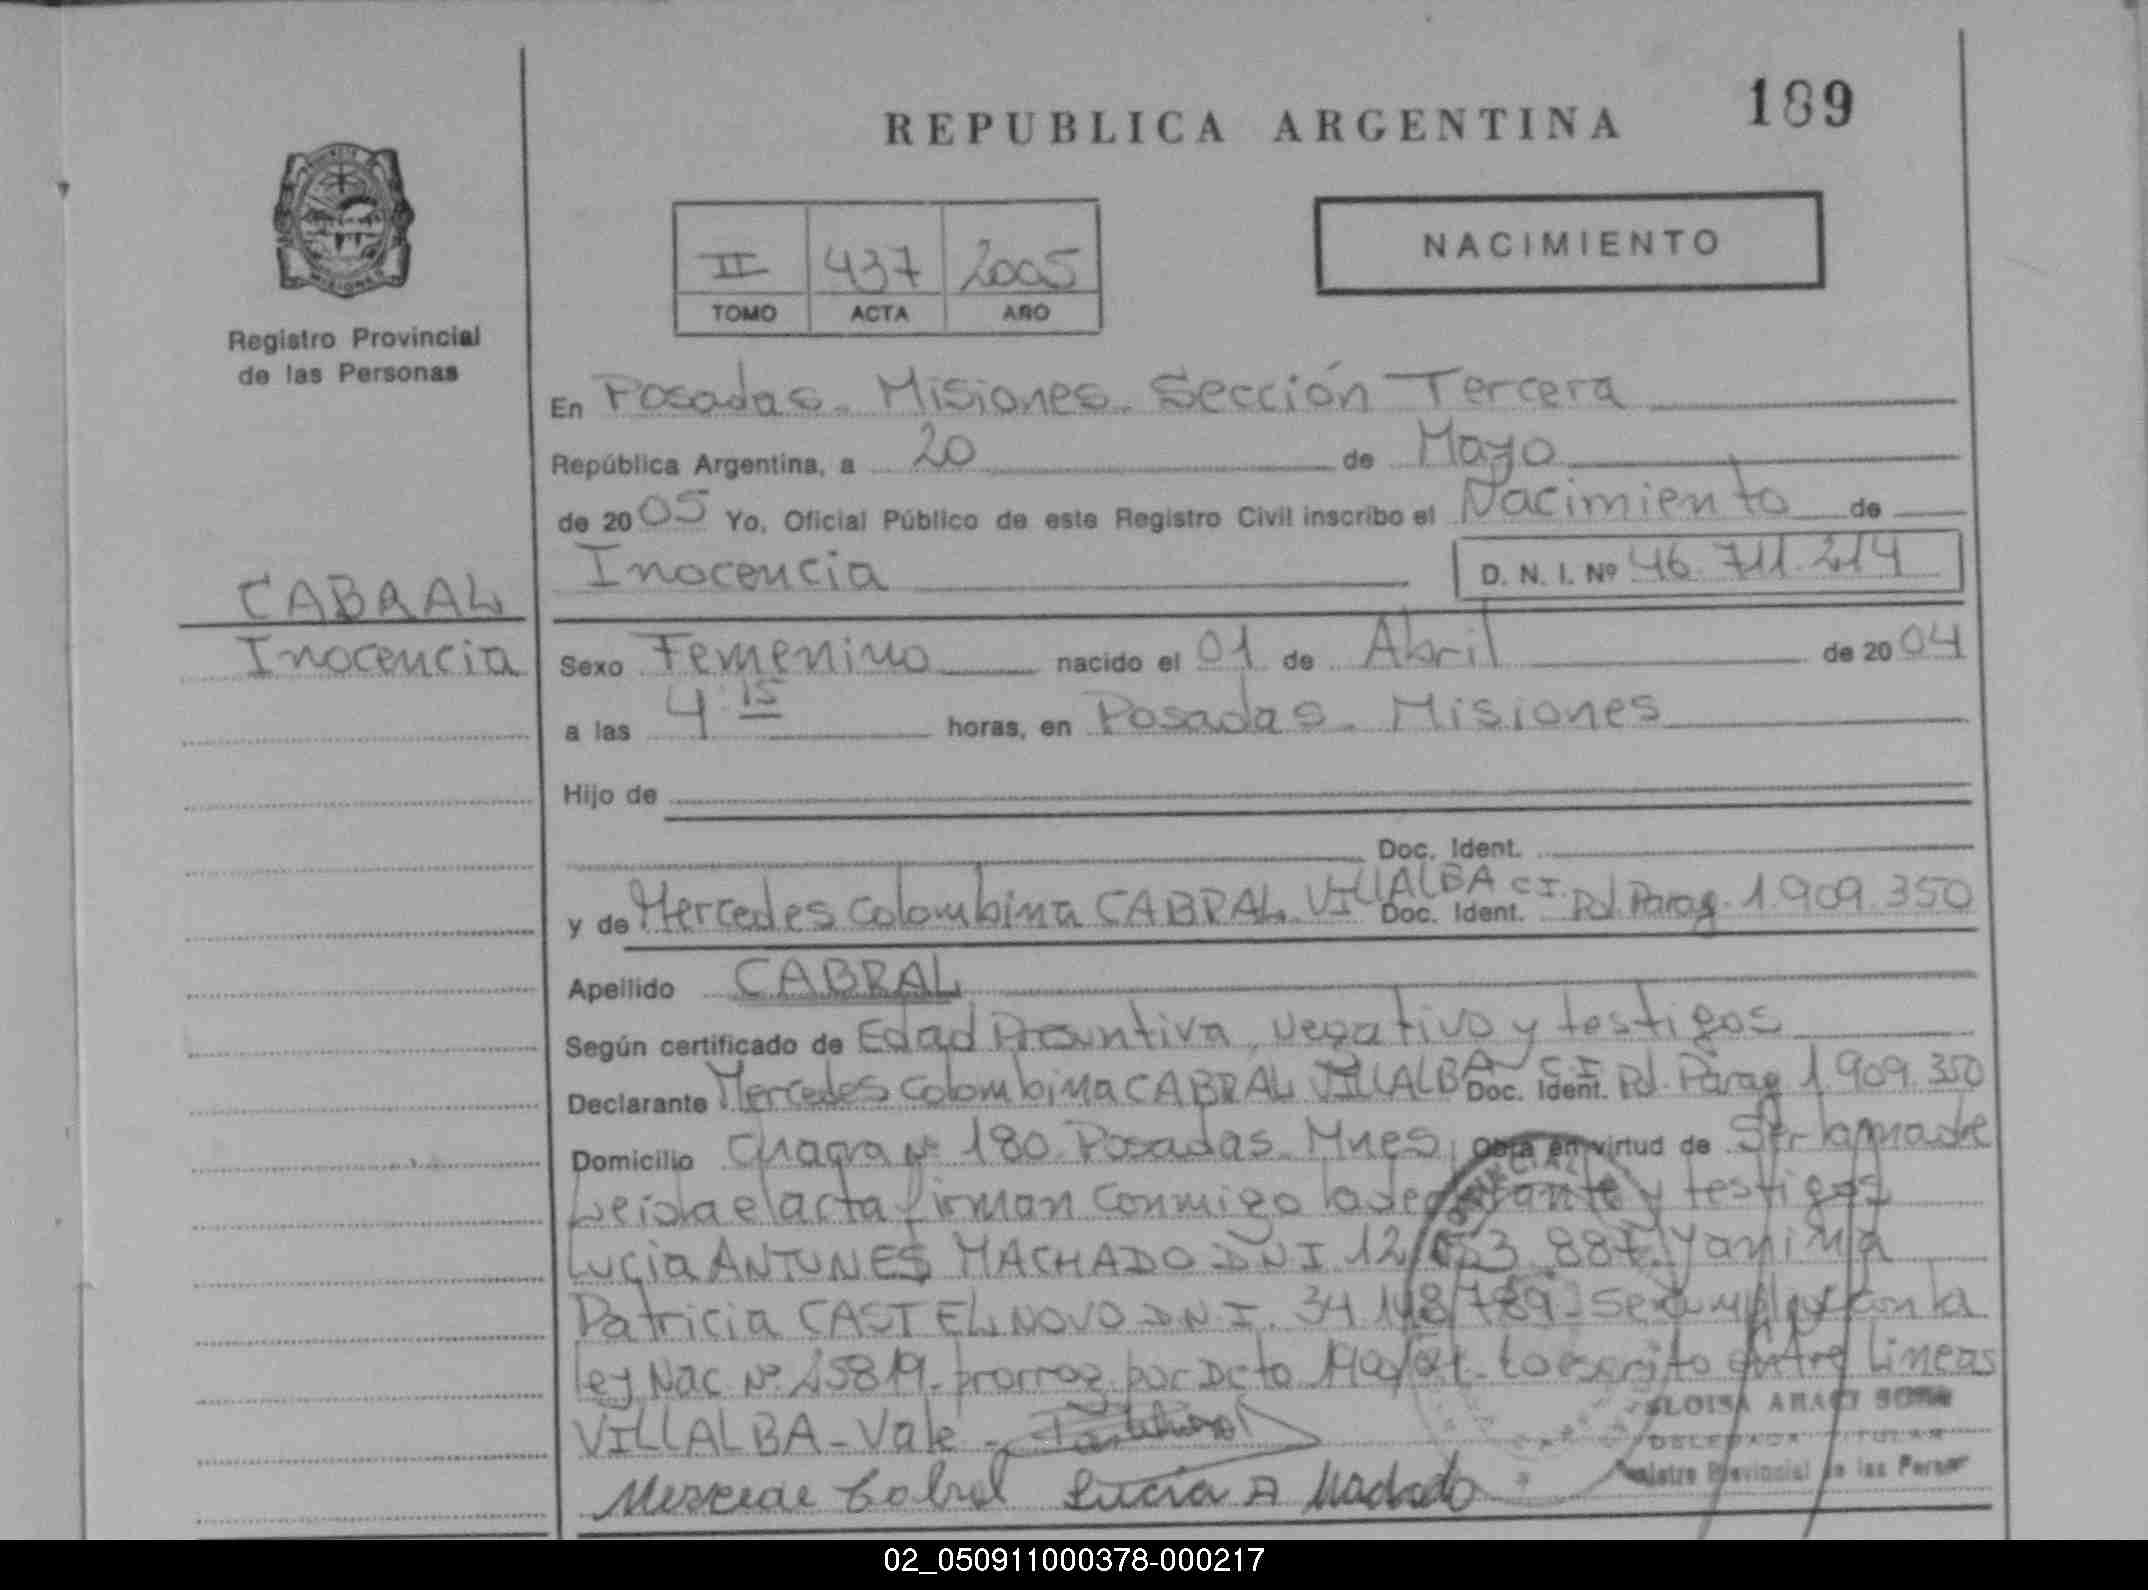 REPUBLICA ARGENTINA
189
II 437 2005
TOMO ACTA AÑO
NACIMIENTO
Registro Provincial
de las Personas
En Posadas - Misiones - Sección Tercera
República Argentina, a 20 de Mayo
de 2005 Yo, Oficial Público de este Registro Civil inscribo el Nacimiento de
Inocencia D. N. I. Nº 46.711.214
CABRAL
Inocencia
Sexo Femenino nacido el 01 de Abril de 2004
a las 4:15 horas, en Posadas - Misiones
Hijo de
Doc. Ident.
y de Mercedes Colombina CABRAL VILLALBA Doc. Ident. C.I. Pol. Parag. 1.909.350
Apellido CABRAL
Según certificado de Edad Presuntiva, negativo y testigos
Declarante Mercedes Colombina CABRAL VILLALBA Doc. Ident. C.I. Pol. Parag 1.909.350
Domicilio Chacra Nº 180 Posadas - Mnes Obra en virtud de Ser la madre
Leída el acta firman conmigo la declarante y testigos
Lucia ANTUNES MACHADO DNI 12 887. Yanina
Patricia CASTELNOVO D.N.I. 34.148.789 - Se cumple con la
ley Nac. Nº 25819 - prorrog. por Dcto Lo escrito entre Lineas
VILLALBA - Vale -
Mercede Cabral Lucia A Machado
ELOISA
DELEGADA TITULAR
Registro Provincial de las Personas
02_050911000378-000217